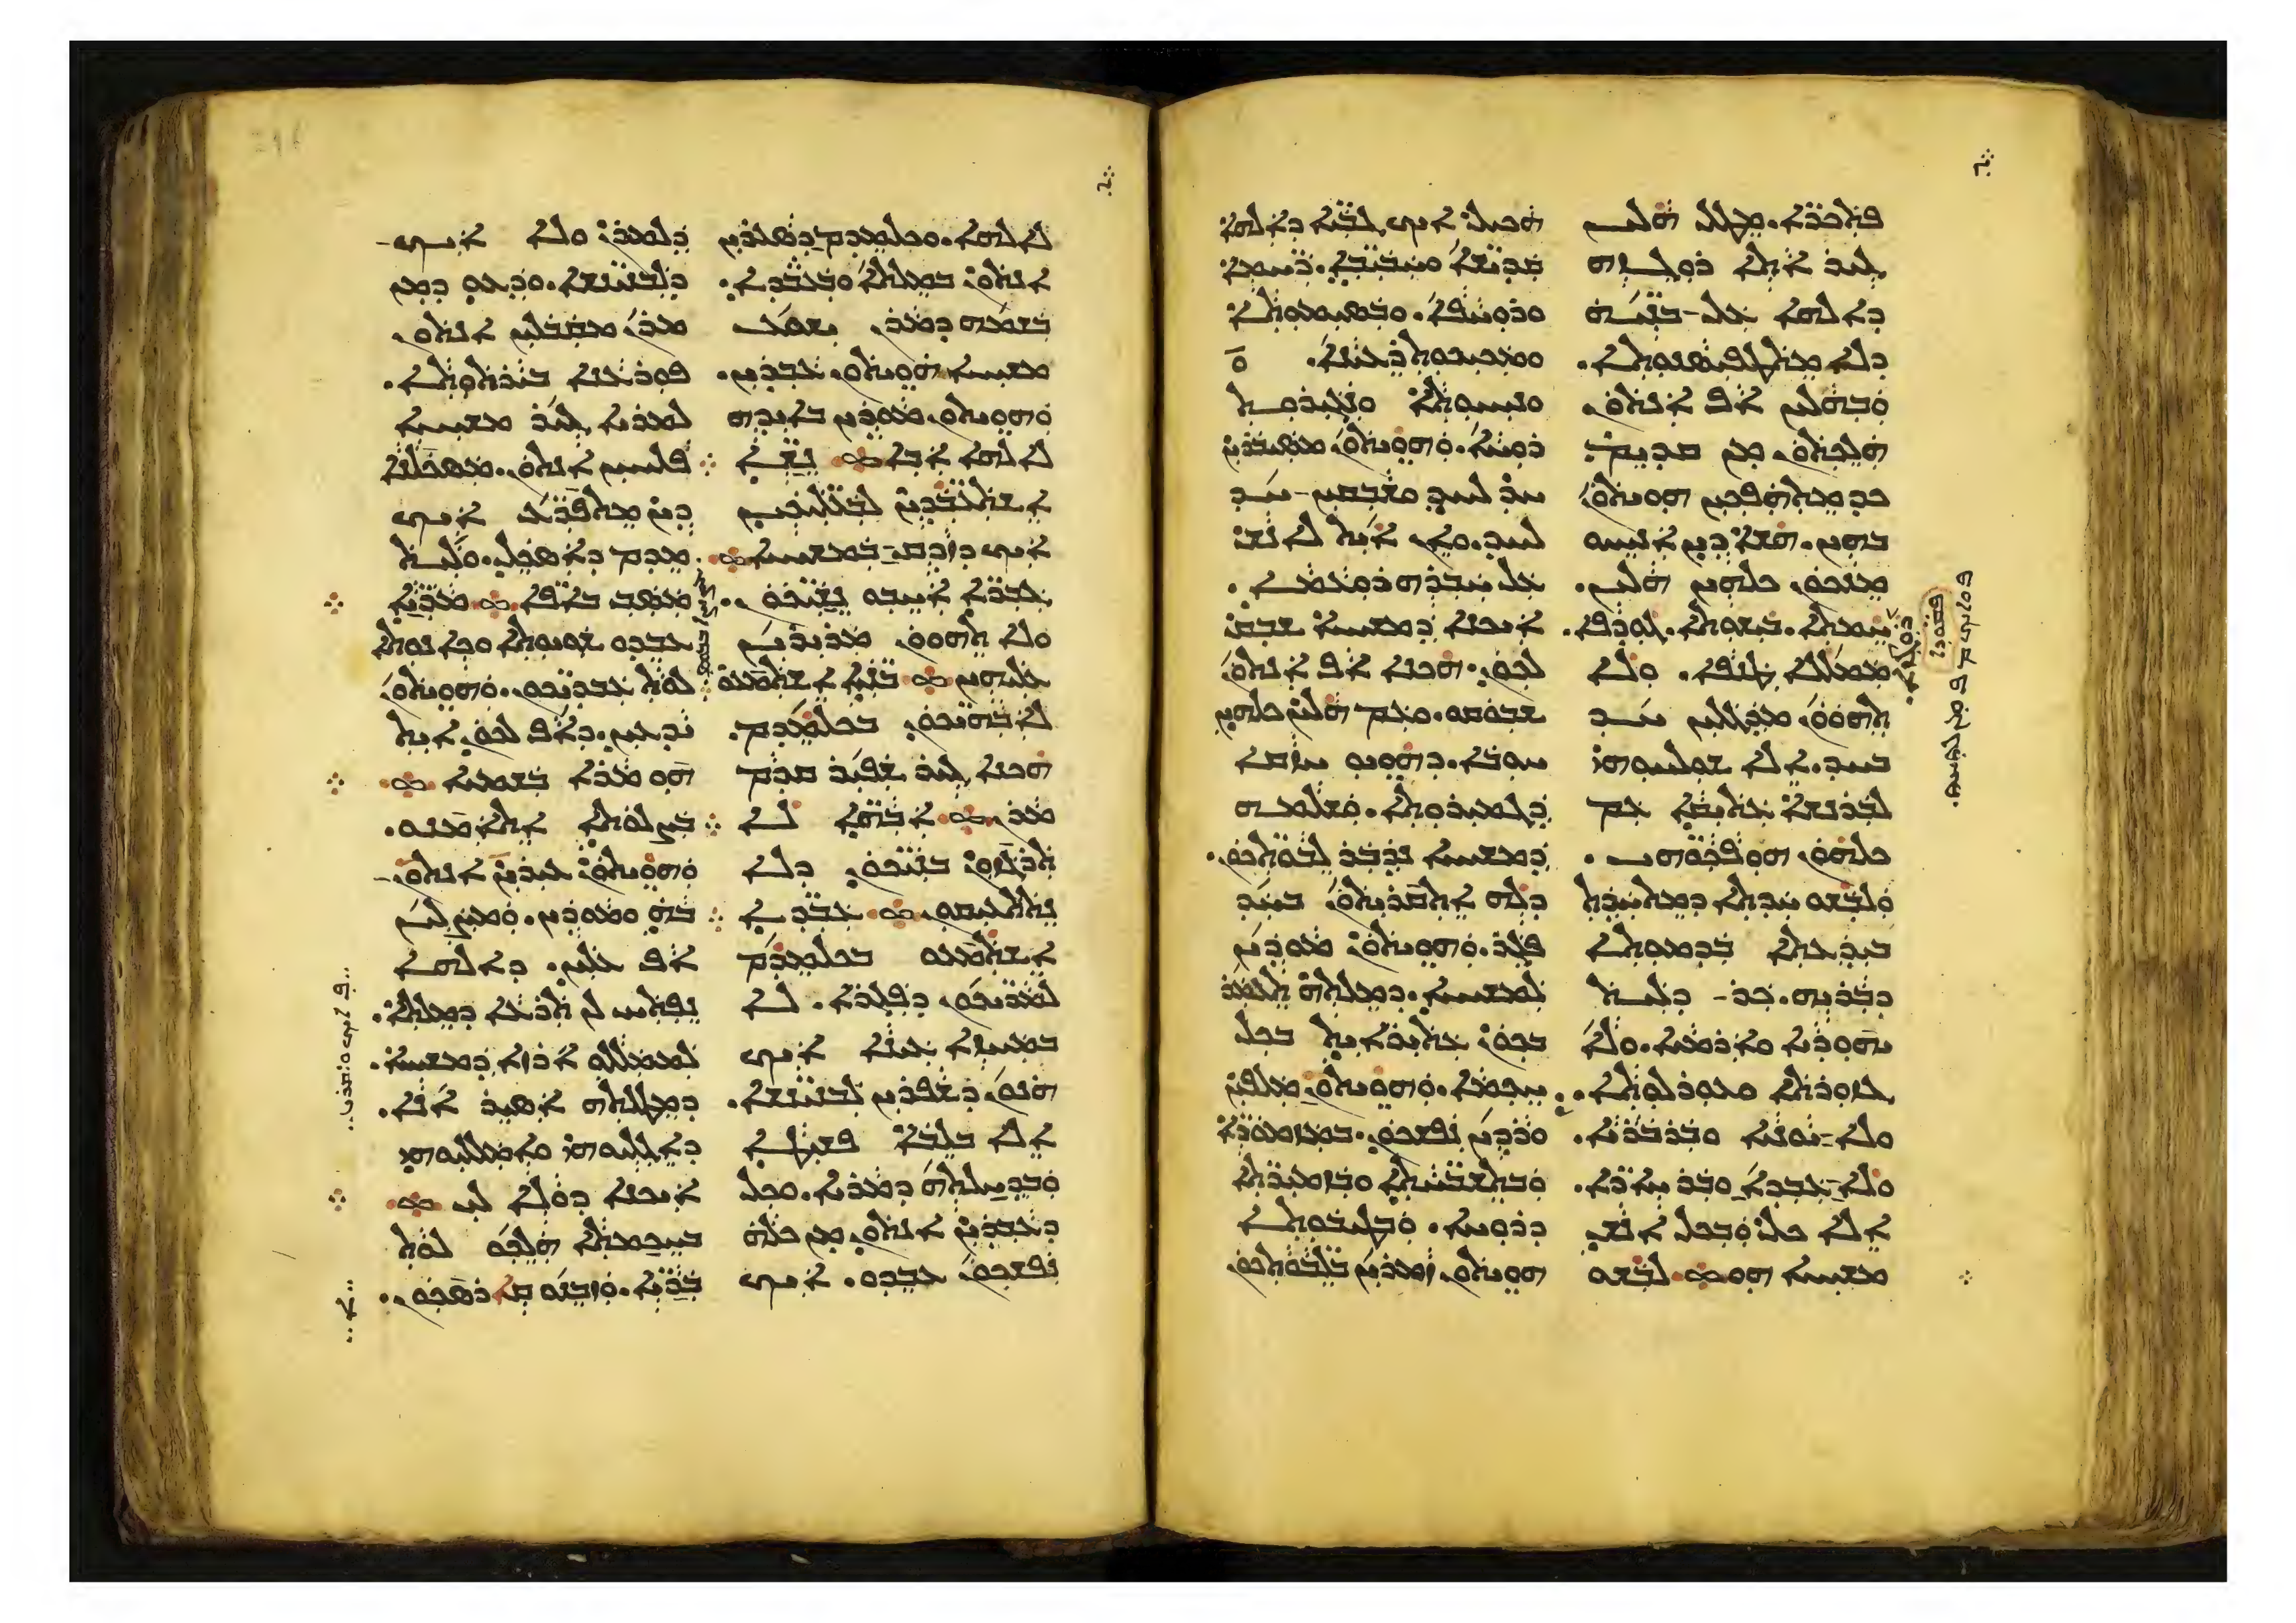 ܦܬܟܪܐ. ܡܛܠ ܗܠܝܢ
ܓܝܪ ܐܬܐ ܪܘܓܙܗ
ܕܐܠܗܐ ܥܠ ܒܢܝܐ
ܕܠܐ ܡܬܛܦܝܣܢܘܬܐ.
ܘܒܗܠܝܢ ܐܦ ܐܢܬܘܢ
ܗܠܟܬܘܢ ܡܢ ܩܕܝܡ
ܟܕ ܡܬܗܦܟܝܢ ܗܘܝܬܘܢ
ܒܗܝܢ. ܗܫܐ ܕܝܢ ܐܢܝܚܘ
ܡܢܟܘܢ ܟܠܗܝܢ ܗܠܝܢ.
ܚܡܬܐ. ܒܝܫܬܐ. ܓܘܕܦܐ.
ܡܡܠܠܐ ܛܢܦܐ. ܘܠܐ
ܬܗܘܘܢ ܡܕܓܠܝܢ ܚܕ
ܒܚܕ. ܐܠܐ ܫܘܠܚܘܗܝ
ܠܒܪܢܫܐ ܥܬܝܩܐ ܥܡ
ܟܠܗܘܢ ܗܘܦܟܘܗܝ.
ܘܠܒܫܘ ܚܕܬܐ ܕܡܬܚܕܬ
ܒܝܕܥܬܐ ܒܕܡܘܬܐ
ܕܒܪܝܗ. ܟܪ ܕܠܝܬ
ܝܗܘܕܝܐ ܘܐܪܡܝܐ. ܘܠܐ
ܓܙܘܪܬܐ ܘܥܘܪܠܘܬܐ.
ܘܠܐ ܝܘܢܝܐ ܘܒܪܒܪܝܐ.
ܘܠܐ ܥܒܕܐ ܘܒܪ ܚܐܪܐ.
ܐܠܐ ܟܠ ܘܒܟܠ ܐܢܫ
ܡܫܝܚܐ ܗܘ ܠܒܫܘ
ܗܟܝܠ ܐܝܟ ܓܒܝܐ ܕܐܠܗܐ
ܩܕܝܫܐ ܘܚܒܝܒܐ. ܪܚܡܐ
ܘܪܘܚܦܐ. ܘܒܣܝܡܘܬܐ
ܘܡܟܝܟܘܬ ܪܥܝܢܐ.
ܘܢܝܚܘܬܐ ܘܢܓܝܪܘܬ
ܪܘܚܐ. ܘܗܘܝܬܘܢ ܡܣܝܒܪܝܢ
ܚܕ ܠܚܕ ܘܫܒܩܝܢ ܚܕ
ܠܚܕ. ܘܐܢ ܐܝܬ ܠܐܢܫ
ܥܠ ܚܒܪܗ ܪܘܥܡܐ.
ܐܝܟܢܐ ܕܡܫܝܚܐ ܫܒܩ
ܠܟܘܢ. ܗܟܢܐ ܐܦ ܐܢܬܘܢ
ܫܒܘܩܘ. ܘܥܡ ܗܠܝܢ ܟܠܗܝܢ
ܚܘܒܐ. ܕܗܘܝܘ ܚܙܩܐ
ܕܓܡܝܪܘܬܐ. ܘܫܠܡܗ
ܕܡܫܝܚܐ ܢܕܒܪ ܠܒܘܬܟܘܢ.
ܕܠܗ ܐܬܩܪܝܬܘܢ ܒܚܕ
ܦܓܪ. ܘܗܘܝܬܘܢ ܡܘܕܝܢ
ܠܡܫܝܚܐ. ܕܡܠܬܗ ܬܥܡܪ
ܒܟܘܢ ܥܬܝܪܐܝܬ ܒܟܠ
ܚܟܡܐ. ܘܗܘܝܬܘܢ ܡܠܦܝܢ
ܘܪܕܝܢ ܢܦܫܟܘܢ. ܒܡܙܡܘܪܐ
ܘܒܬܫܒܚܬܐ ܘܒܙܡܝܪܬܐ
ܕܪܘܚܐ. ܘܒܛܝܒܘܬܐ
ܗܘܝܬܘܢ ܙܡܪܝܢ ܒܠܒܘܬܟܘܢ
ܠܐܠܗܐ. ܘܟܠܡܕܡ ܕܣܥܪܝܢ
ܐܢܬܘܢ ܒܡܠܬܐ ܘܒܥܒܕܐ.
ܒܫܡܗ ܕܡܪܢ ܝܫܘܥ
ܡܫܝܚܐ ܗܘܝܬܘܢ ܥܒܕܝܢ.
ܘܗܘܝܬܘܢ ܡܘܕܝܢ ܒܐܝܕܗ
ܠܐܠܗܐ ܐܒܐ ܢܫܐ
ܐܫܬܥܒܕܝܢ ܠܒܥܠܝܟܝܢ
ܐܝܟ ܕܙܕܩ ܒܡܫܝܚܐ
ܓܒܪܐ ܐܚܒܘ ܢܫܝܟܘܢ.
ܘܠܐ ܬܗܘܘܢ ܡܪܝܪܝܢ
ܥܠܝܗܝܢ ܒܢܝܐ ܐܫܬܡܥܘ
ܠܐܒܗܝܟܘܢ ܒܟܠܡܕܡ.
ܗܟܢܐ ܓܝܪ ܫܦܝܪ ܩܕܡ
ܡܪܢ ܐܒܗܐ ܠܐ
ܬܪܓܙܘܢ ܒܢܝܟܘܢ ܕܠܐ
ܢܬܬܥܝܩܘܢ ܥܒܕܐ
ܐܫܬܡܥܘ ܒܟܠܡܕܡ
ܠܡܪܝܟܘܢ ܕܦܓܪܐ. ܠܐ
ܒܡܚܙܐ ܥܝܢܐ ܐܝܟ
ܗܢܘܢ ܕܫܦܪܝܢ ܠܒܢܝܢܫܐ.
ܐܠܐ ܒܠܒܐ ܦܫܝܛܐ
ܘܒܕܚܠܬܗ ܕܡܪܝܐ. ܘܟܠ
ܕܥܒܕܝܢ ܐܢܬܘܢ ܡܢ ܟܠܗ
ܢܦܫܟܘܢ ܥܒܕܘ. ܐܝܟ
ܕܠܡܪܢ ܘܠܐ ܐܝܟ
ܕܠܒܢܝܢܫܐ. ܘܕܥܘ ܕܡܢ
ܡܪܢ ܡܩܒܠܝܢ ܐܢܬܘܢ
ܦܘܪܥܢܐ ܒܝܪܬܘܬܐ.
ܠܡܪܝܐ ܓܝܪ ܡܫܝܚܐ
ܦܠܚܝܢ ܐܢܬܘܢ. ܡܣܟܠܢܐ
ܕܝܢ ܡܬܦܪܥ ܐܝܟ
ܡܕܡ ܕܐܣܟܠ. ܘܠܝܬ
ܡܣܒ ܒܐܦܐ ܡܪܝܐ
ܥܒܕܘ ܫܘܝܘܬܐ ܘܟܐܢܘܬܐ
ܠܘܬ ܥܒܕܝܟܘܢ. ܘܗܘܝܬܘܢ
ܝܕܥܝܢ. ܕܐܦ ܠܟܘܢ ܐܝܬ
ܗܘ ܡܪܐ ܒܫܡܝܐ
ܒܨܠܘܬܐ ܐܬܐܡܢܘ.
ܘܗܘܝܬܘܢ ܥܝܪܝܢ
ܒܗ ܘܡܘܕܝܢ. ܘܡܨܠܝܢ
ܐܦ ܥܠܝܢ. ܕܐܠܗܐ
ܢܦܬܚ ܠܢ ܬܪܥܐ ܕܡܠܬܐ.
ܠܡܡܠܠܘ ܐܪܙܐ ܕܡܫܝܚܐ.
ܕܡܛܠܬܗ ܐܣܝܪ ܐܢܐ.
ܕܐܓܠܝܘܗܝ ܘܐܡܠܠܝܘܗܝ
ܐܝܟܢܐ ܕܘܠܐ ܠܝ
ܒܚܟܡܬܐ ܗܠܟܘ ܠܘܬ
ܒܪܝܐ. ܘܙܒܢܘ ܩܐܪܣܟܘܢ.